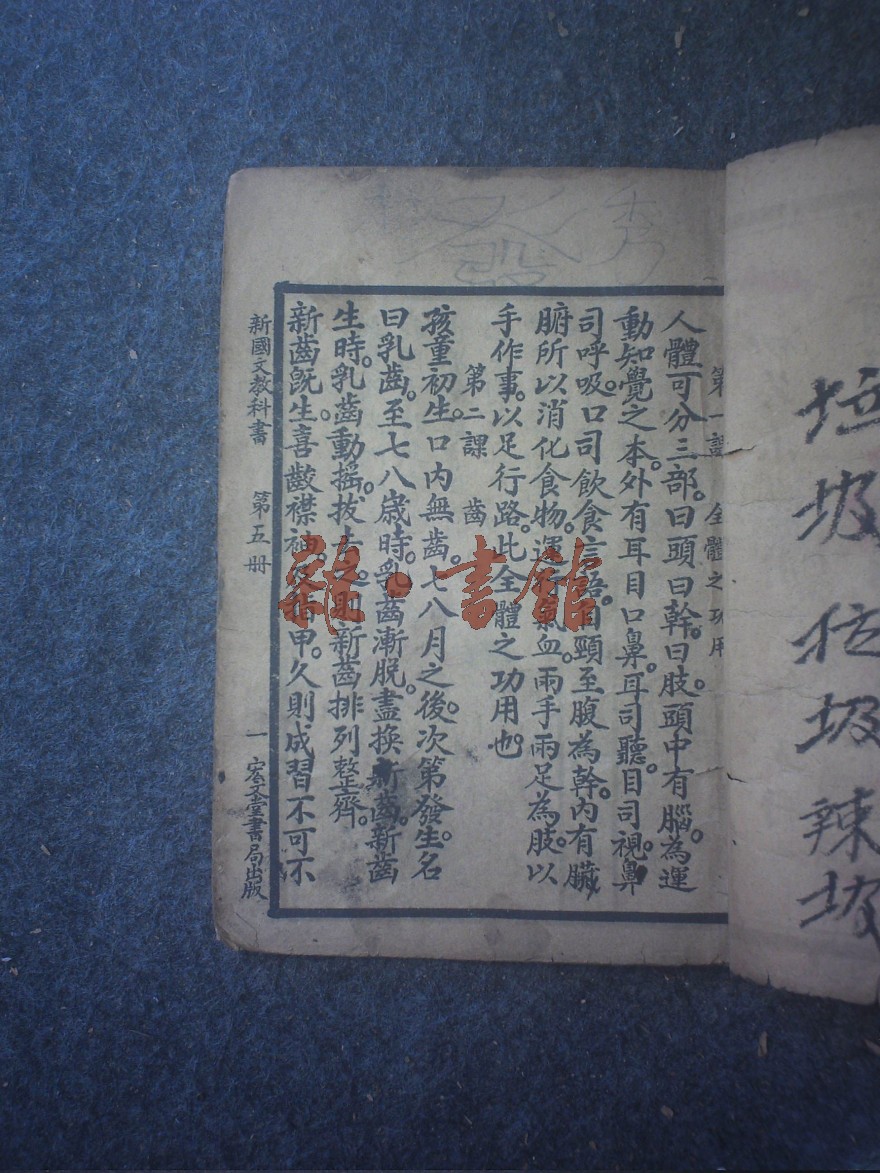 第一課 全體之功用
人體可分三部。曰頭曰幹。曰肢。頭中有腦。為運
動知覺之本。外有耳目口鼻。耳司聽。目司視。鼻
司呼吸。口司飲食言語。自頸至腹為幹。內有臟
腑所以消化食物。運行氣血。兩手兩足為肢。以
手作事。以足行路。此全體之功用也。
第二課 齒
孩童初生。口內無齒。七八月之後。次第發生。名
曰乳齒。至七八歲時。乳齒漸脫。盡換新齒。新齒
生時。乳齒動搖。拔去之則新齒排列整齊。
新齒既生。喜齧襟袖。及指甲。久則成習不可不
新國文教科書 第五册 一 宏文堂書局出版
秀
雜·書館
垃圾垃圾辣圾